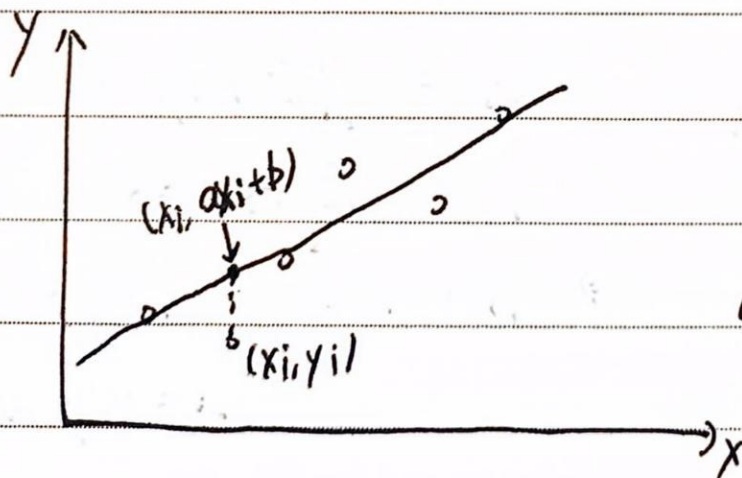 y
(xi, axi+b)
(xi, yi)
x